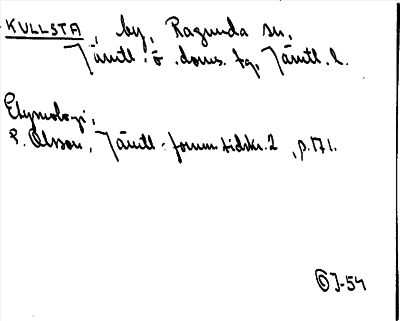 KULLSTA, by, Ragunda sn,
Jämtl. ö. doms. fg, Jämtl. l.
Etymologi,
P. Olsson, Jämtl. fornm.tidskr. 2, p. 171.
J-54